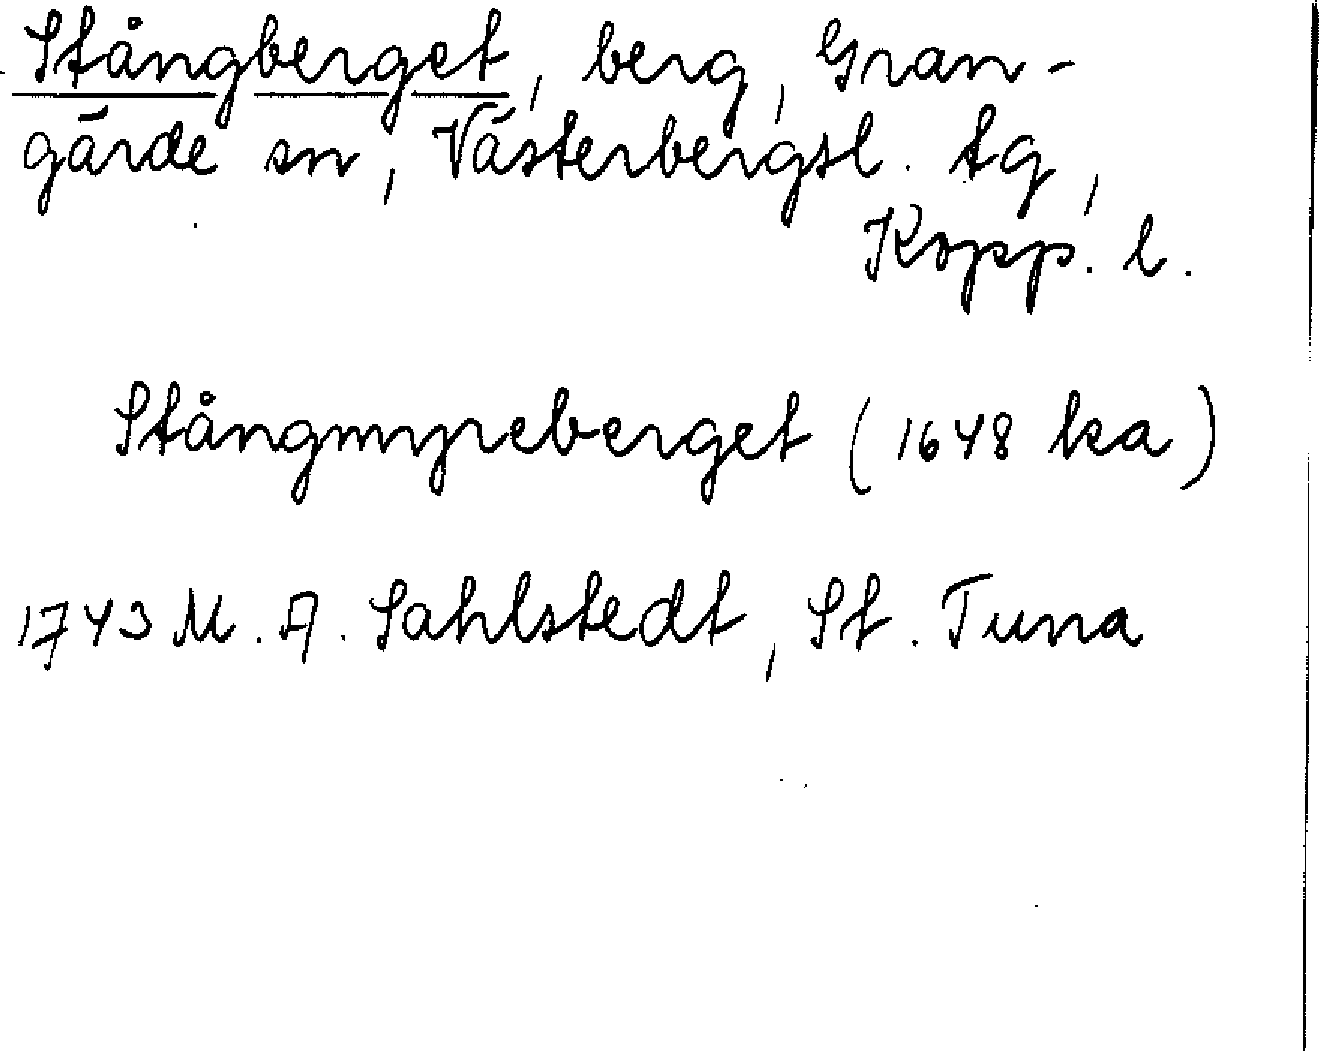 Stångberget, berg, Gran-
gärde sn, Västerbergsl. tg,
Kopp. l.
Stångmyreberget (1648 ka)
1743 M. A. Sahlstedt, St. Tuna